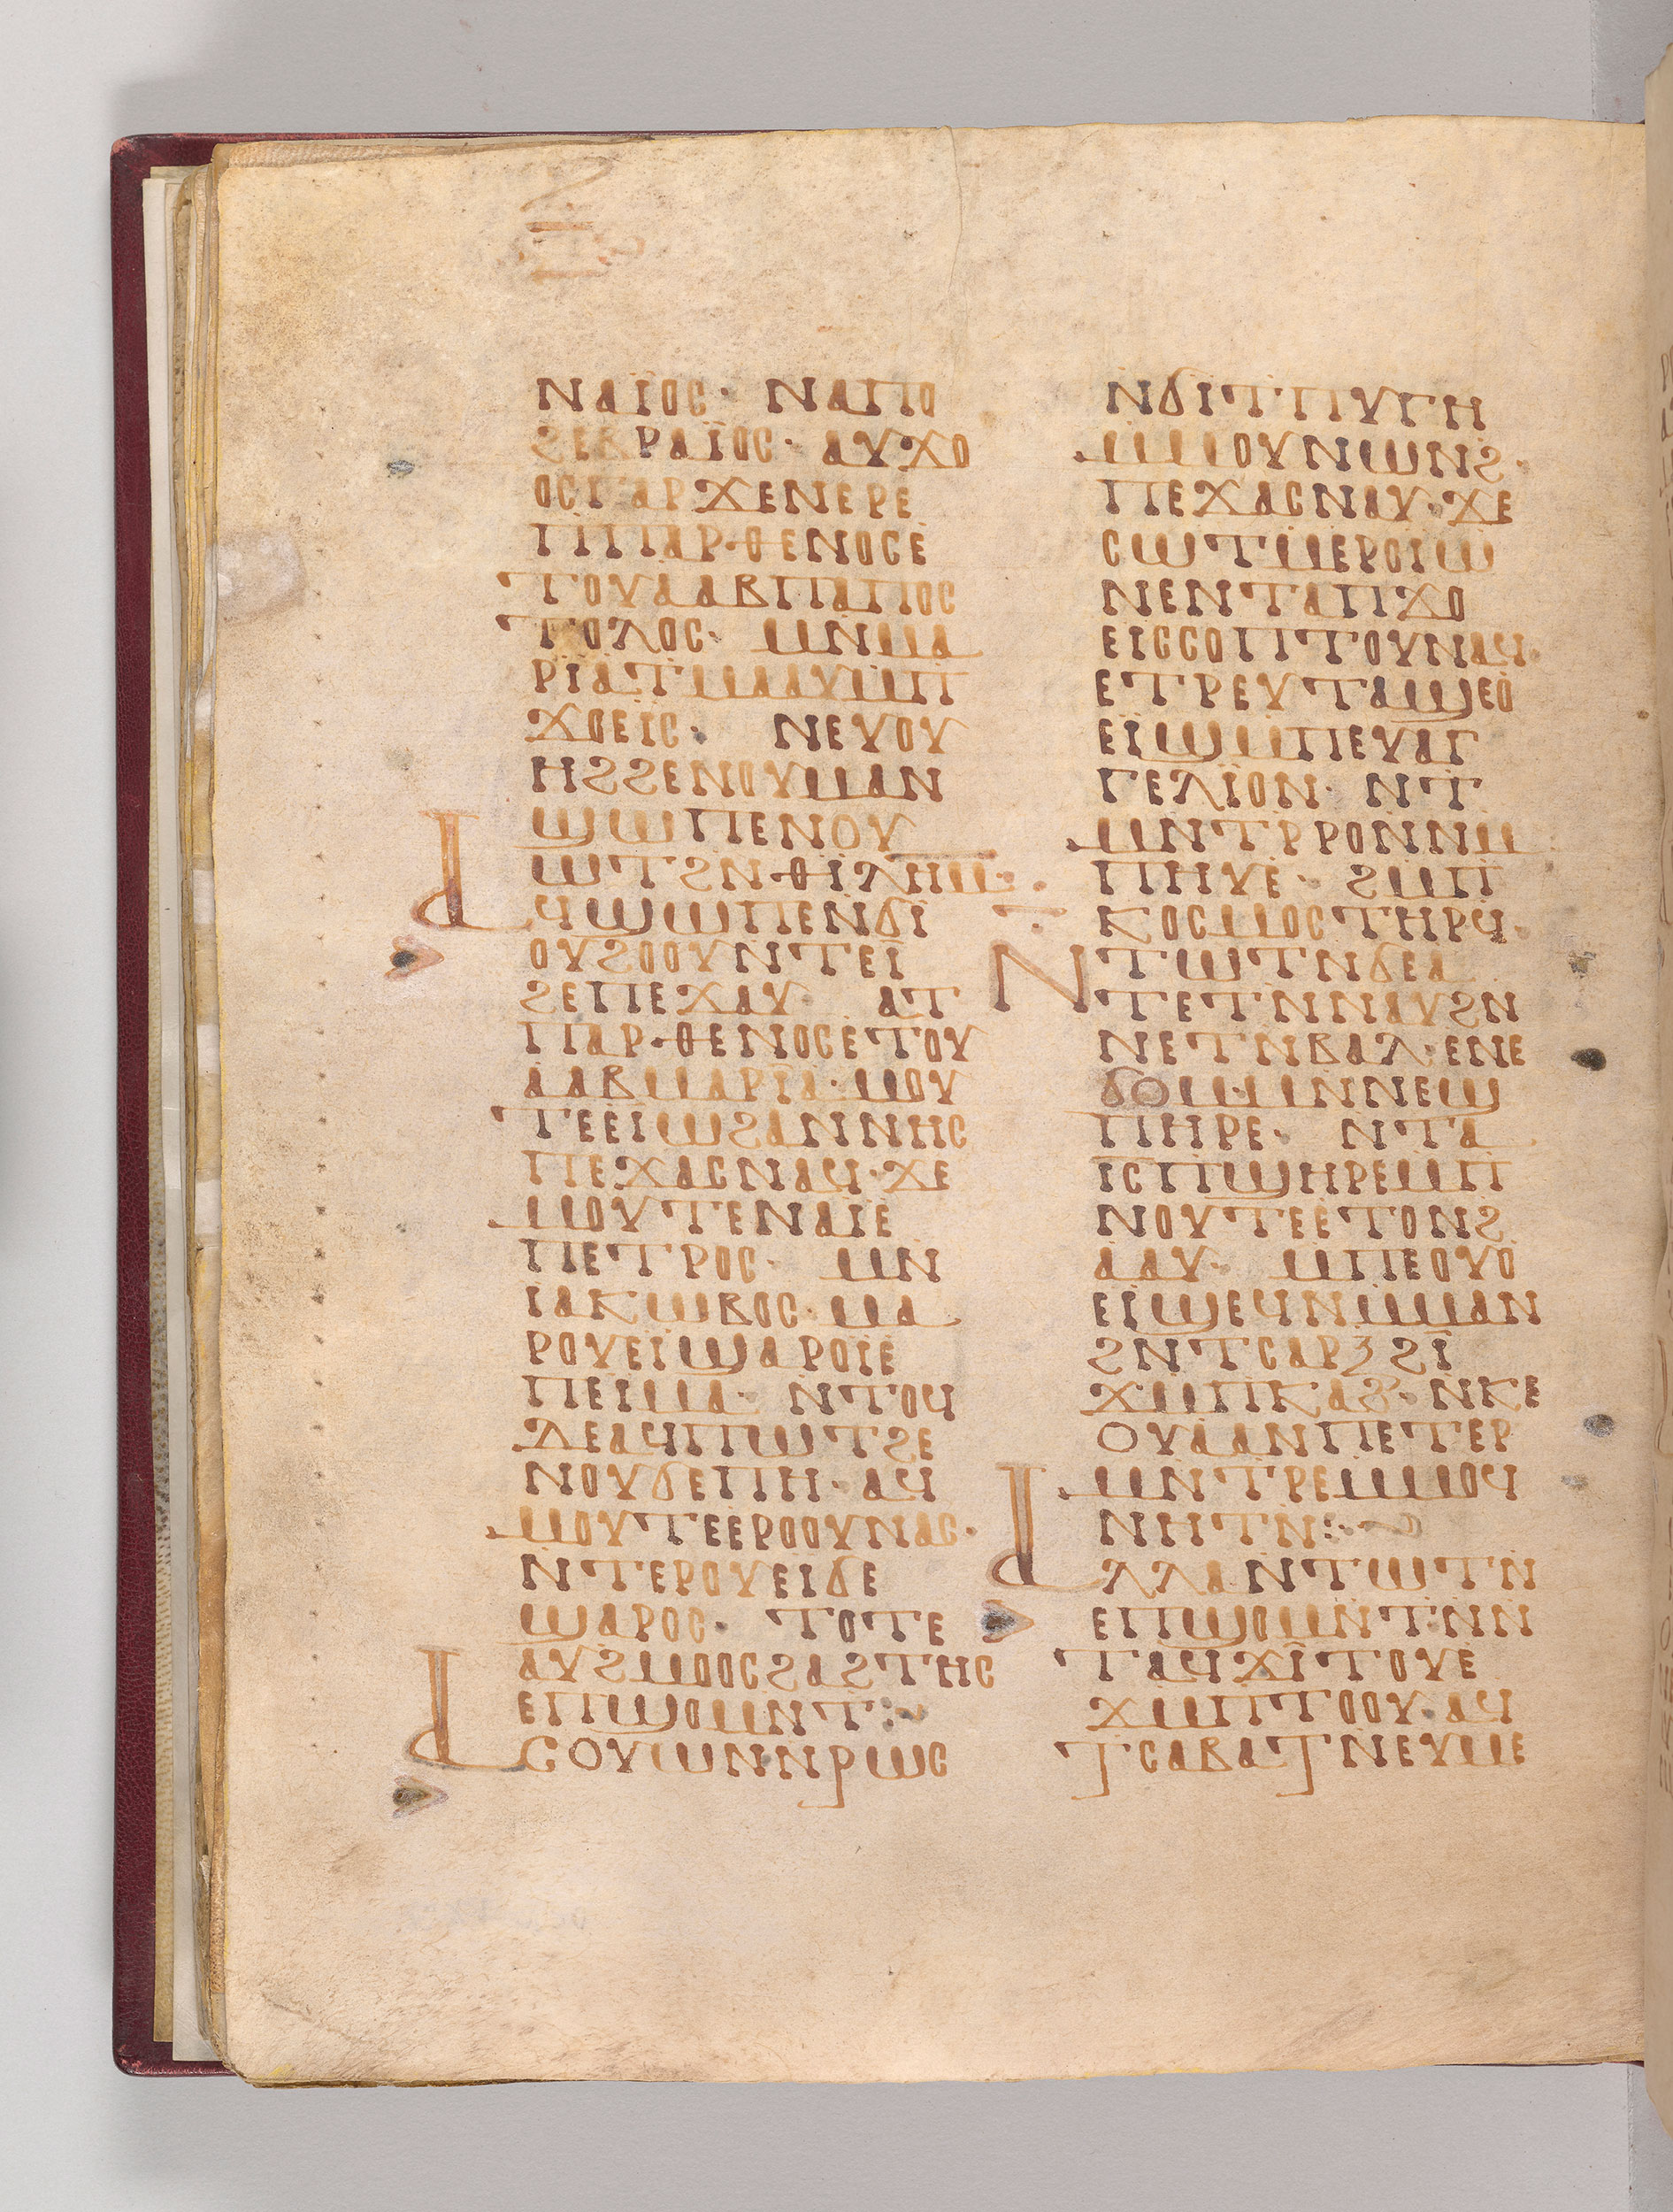 ⲛⲁⲓ̈ⲟⲥ· ⲛⲁⲡⲟ
ϩⲉⲃⲣⲁⲓ̈ⲟⲥ· ⲁⲩϫⲟ
ⲟⲥⲅⲁⲣϫⲉⲛⲉⲣⲉ
ⲡⲡⲁⲣⲑⲉⲛⲟⲥⲉ
ⲧⲟⲩⲁⲁⲃⲡⲁⲡⲟⲥ
ⲧⲟⲗⲟⲥ· ⲙⲛⲙⲁ
ⲣⲓⲁⲧⲙⲁⲁⲩⲙⲡ
ϫⲟⲉⲓⲥ· ⲛⲉⲩⲟⲩ
ⲏϩϩⲉⲛⲟⲩⲙⲁⲛ
ϣⲱⲡⲉⲛⲟⲩ
ⲱⲧϩⲛⲑⲓⲗⲏⲙ·
ⲁϥϣⲱⲡⲉⲛϭⲓ
ⲟⲩϩⲟⲟⲩⲛⲧⲉⲓ
ϩⲉⲡⲉϫⲁⲩ ⲁⲧ
ⲡⲁⲣⲑⲉⲛⲟⲥⲉⲧⲟⲩ
ⲁⲁⲃⲙⲁⲣⲓⲁ·ⲙⲟⲩ
ⲧⲉⲉⲓⲱϩⲁⲛⲛⲏⲥ
ⲡⲉϫⲁⲥⲛⲁϥ·ϫⲉ
ⲙⲟⲩⲧⲉⲛⲁⲓⲉ
ⲡⲉⲧⲣⲟⲥ· ⲙⲛ
ⲓⲁⲕⲱⲃⲟⲥ·ⲙⲁ
ⲣⲟⲩⲉⲓϣⲁⲣⲟⲓⲉ
ⲡⲉⲓⲙⲁ· ⲛⲧⲟϥ
ⲇⲉⲁϥⲡⲱⲧϩⲉ
ⲛⲟⲩϭⲉⲡⲏ·ⲁϥ
ⲙⲟⲩⲧⲉⲉⲣⲟⲟⲩⲛⲁⲥ·
ⲛⲧⲉⲣⲟⲩⲉⲓϭⲉ
ϣⲁⲣⲟⲥ· ⲧⲟⲧⲉ
ⲁⲩϩⲙⲟⲟⲥϩⲁϩⲧⲏⲥ
ⲉⲡϣⲟⲙⲛⲧ:
ⲁⲥⲟⲩⲱⲛⲛⲣⲱⲥ
ⲛϭⲓⲧⲡⲩⲅⲏ
ⲙⲙⲟⲩⲛⲱⲛϩ·
ⲡⲉϫⲁⲥⲛⲁⲩ·ϫⲉ
ⲥⲱⲧⲙⲉⲣⲟⲓⲱ
ⲛⲉⲛⲧⲁⲡϫⲟ
ⲉⲓⲥⲥⲟⲡⲧⲟⲩⲛⲁϥ·
ⲉⲧⲣⲉⲩⲧⲁϣⲉⲟ
ⲉⲓϣⲙⲡⲉⲩⲁⲅ
ⲅⲉⲗⲓⲟⲛ· ⲛⲧ
ⲙⲛⲧⲣⲣⲟⲛⲙ
ⲡⲏⲩⲉ· ϩⲙⲡ
ⲕⲟⲥⲙⲟⲥⲧⲏⲣϥ·
ⲛⲧⲱⲧⲛϭⲉⲁ
ⲧⲉⲧⲛⲛⲁⲩϩⲛ
ⲛⲉⲧⲛⲃⲁⲗ·ⲉⲛⲉ
ϭⲟⲙ·ⲙⲛⲛⲉϣ
ⲡⲏⲣⲉ· ⲛⲧⲁ
ⲓⲥⲡϣⲏⲣⲉⲙⲡ
ⲛⲟⲩⲧⲉⲉⲧⲟⲛϩ
ⲁⲁⲩ· ⲙⲡⲉⲟⲩⲟ
ⲉⲓϣⲉϥⲛⲙⲙⲁⲛ
ϩⲛⲧⲥⲁⲣⲝϩⲓ
ϫⲙⲡⲕⲁϩ·ⲛⲕⲉ
ⲟⲩⲁⲁⲛⲡⲉⲧⲉⲣ
ⲙⲛⲧⲣⲉⲙⲙⲟϥ
ⲛⲏⲧⲛ:
ⲁⲗⲗⲁⲛⲧⲱⲧⲛ
ⲉⲡϣⲟⲙⲛⲧ·ⲛⲛ
ⲧⲁϥϫⲓⲧⲟⲩⲉ
ϫⲙⲡⲧⲟⲟⲩ·ⲁϥ
ⲧⲥⲁⲃⲁⲧⲛⲉⲩⲙⲉ